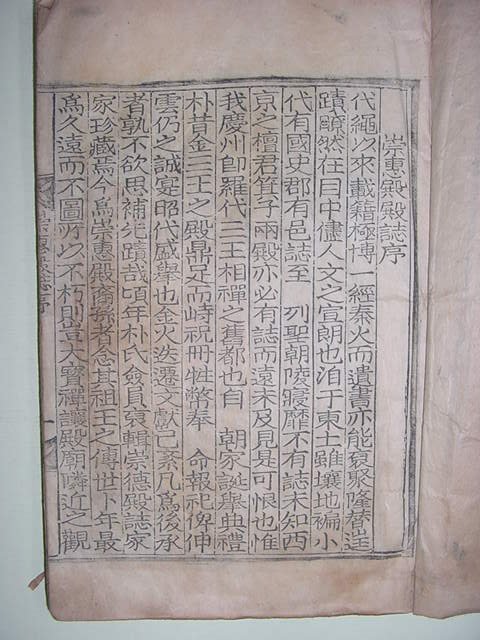 崇惠殿殿誌序
代繩以來載籍極博一經秦火而遺書亦能裒聚隆替
蹟瞭然在目中儘人文之宣朗也洎于東土雖壤地褊小
代有國史郡有邑誌至 列聖朝陵寢靡不有誌未知西
京之檀君箕子兩殿亦必有誌而遠未及見是可恨也惟
我慶州卽羅代三王相禪之舊都也自 朝家誕擧典禮
朴昔金三王之殿鼎足而峙祝冊牲幣奉 命報祀俾伸
雲仍之誠寔昭代盛擧也金火迭遷文獻已紊凡爲後承
者孰不欲思補先蹟哉頃年朴氏僉員裒輯崇德殿誌家
家珍藏焉今爲崇惠殿裔孫者念其祖王之傳世卜年最
爲久遠而不圖所以不朽則豈大寶禪讓殿廟嶙近之觀